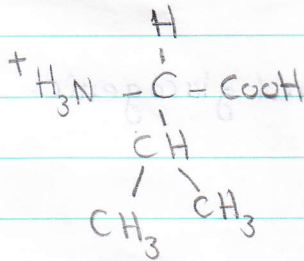 H
+
H₃N - C - COOH
CH
CH₃ CH₃